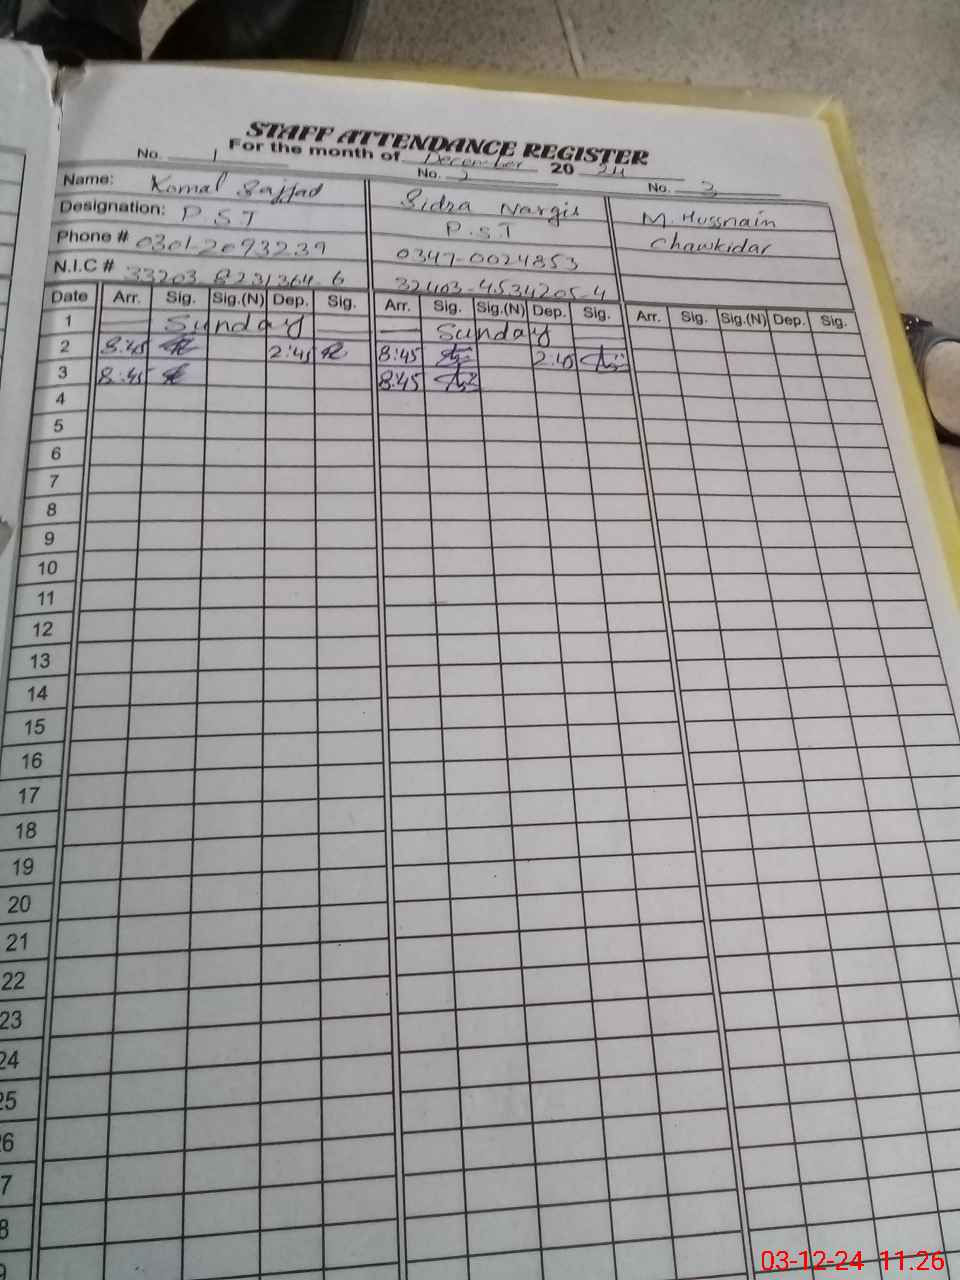 STAFF ATTENDANCE REGISTER
For the month of December 20 24
No. 1 No. 2 No. 3
Name: Komal Sajjad Sidra Nargis M. Hussnain
Designation: P.S.T P.S.T Chawkidar
Phone # 0301-2093239 0347-0024853
N.I.C # 33203-8231364-6 32403-4534205-4
Date Arr. Sig. Sig.(N) Dep. Sig. Arr. Sig. Sig.(N) Dep. Sig. Arr. Sig. Sig.(N) Dep. Sig.
1 Sunday Sunday
2 8:45 2:45 8:45 2:45
3 8:45 8:45
4
5
6
7
8
9
10
11
12
13
14
15
16
17
18
19
20
21
22
23
24
25
26
7
8
9
03-12-24 11.26